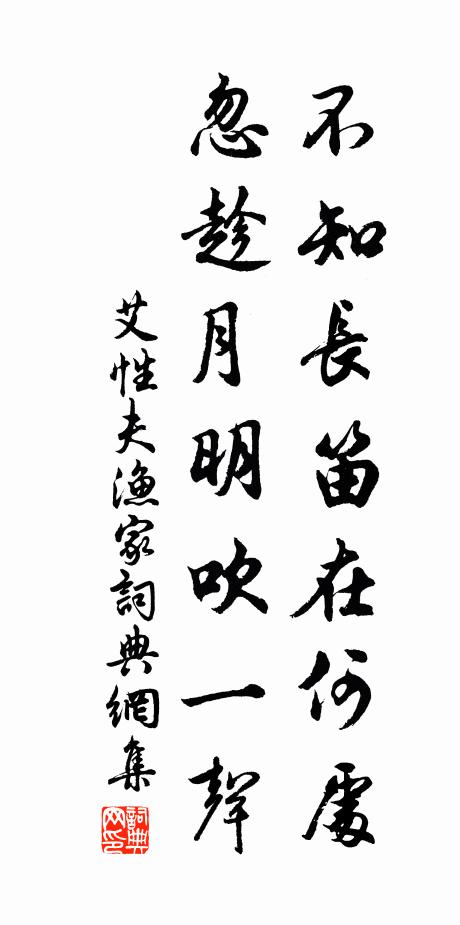 不知長笛在何處
忽趁月明吹一聲
艾性夫漁家詞典網集
詞典網印